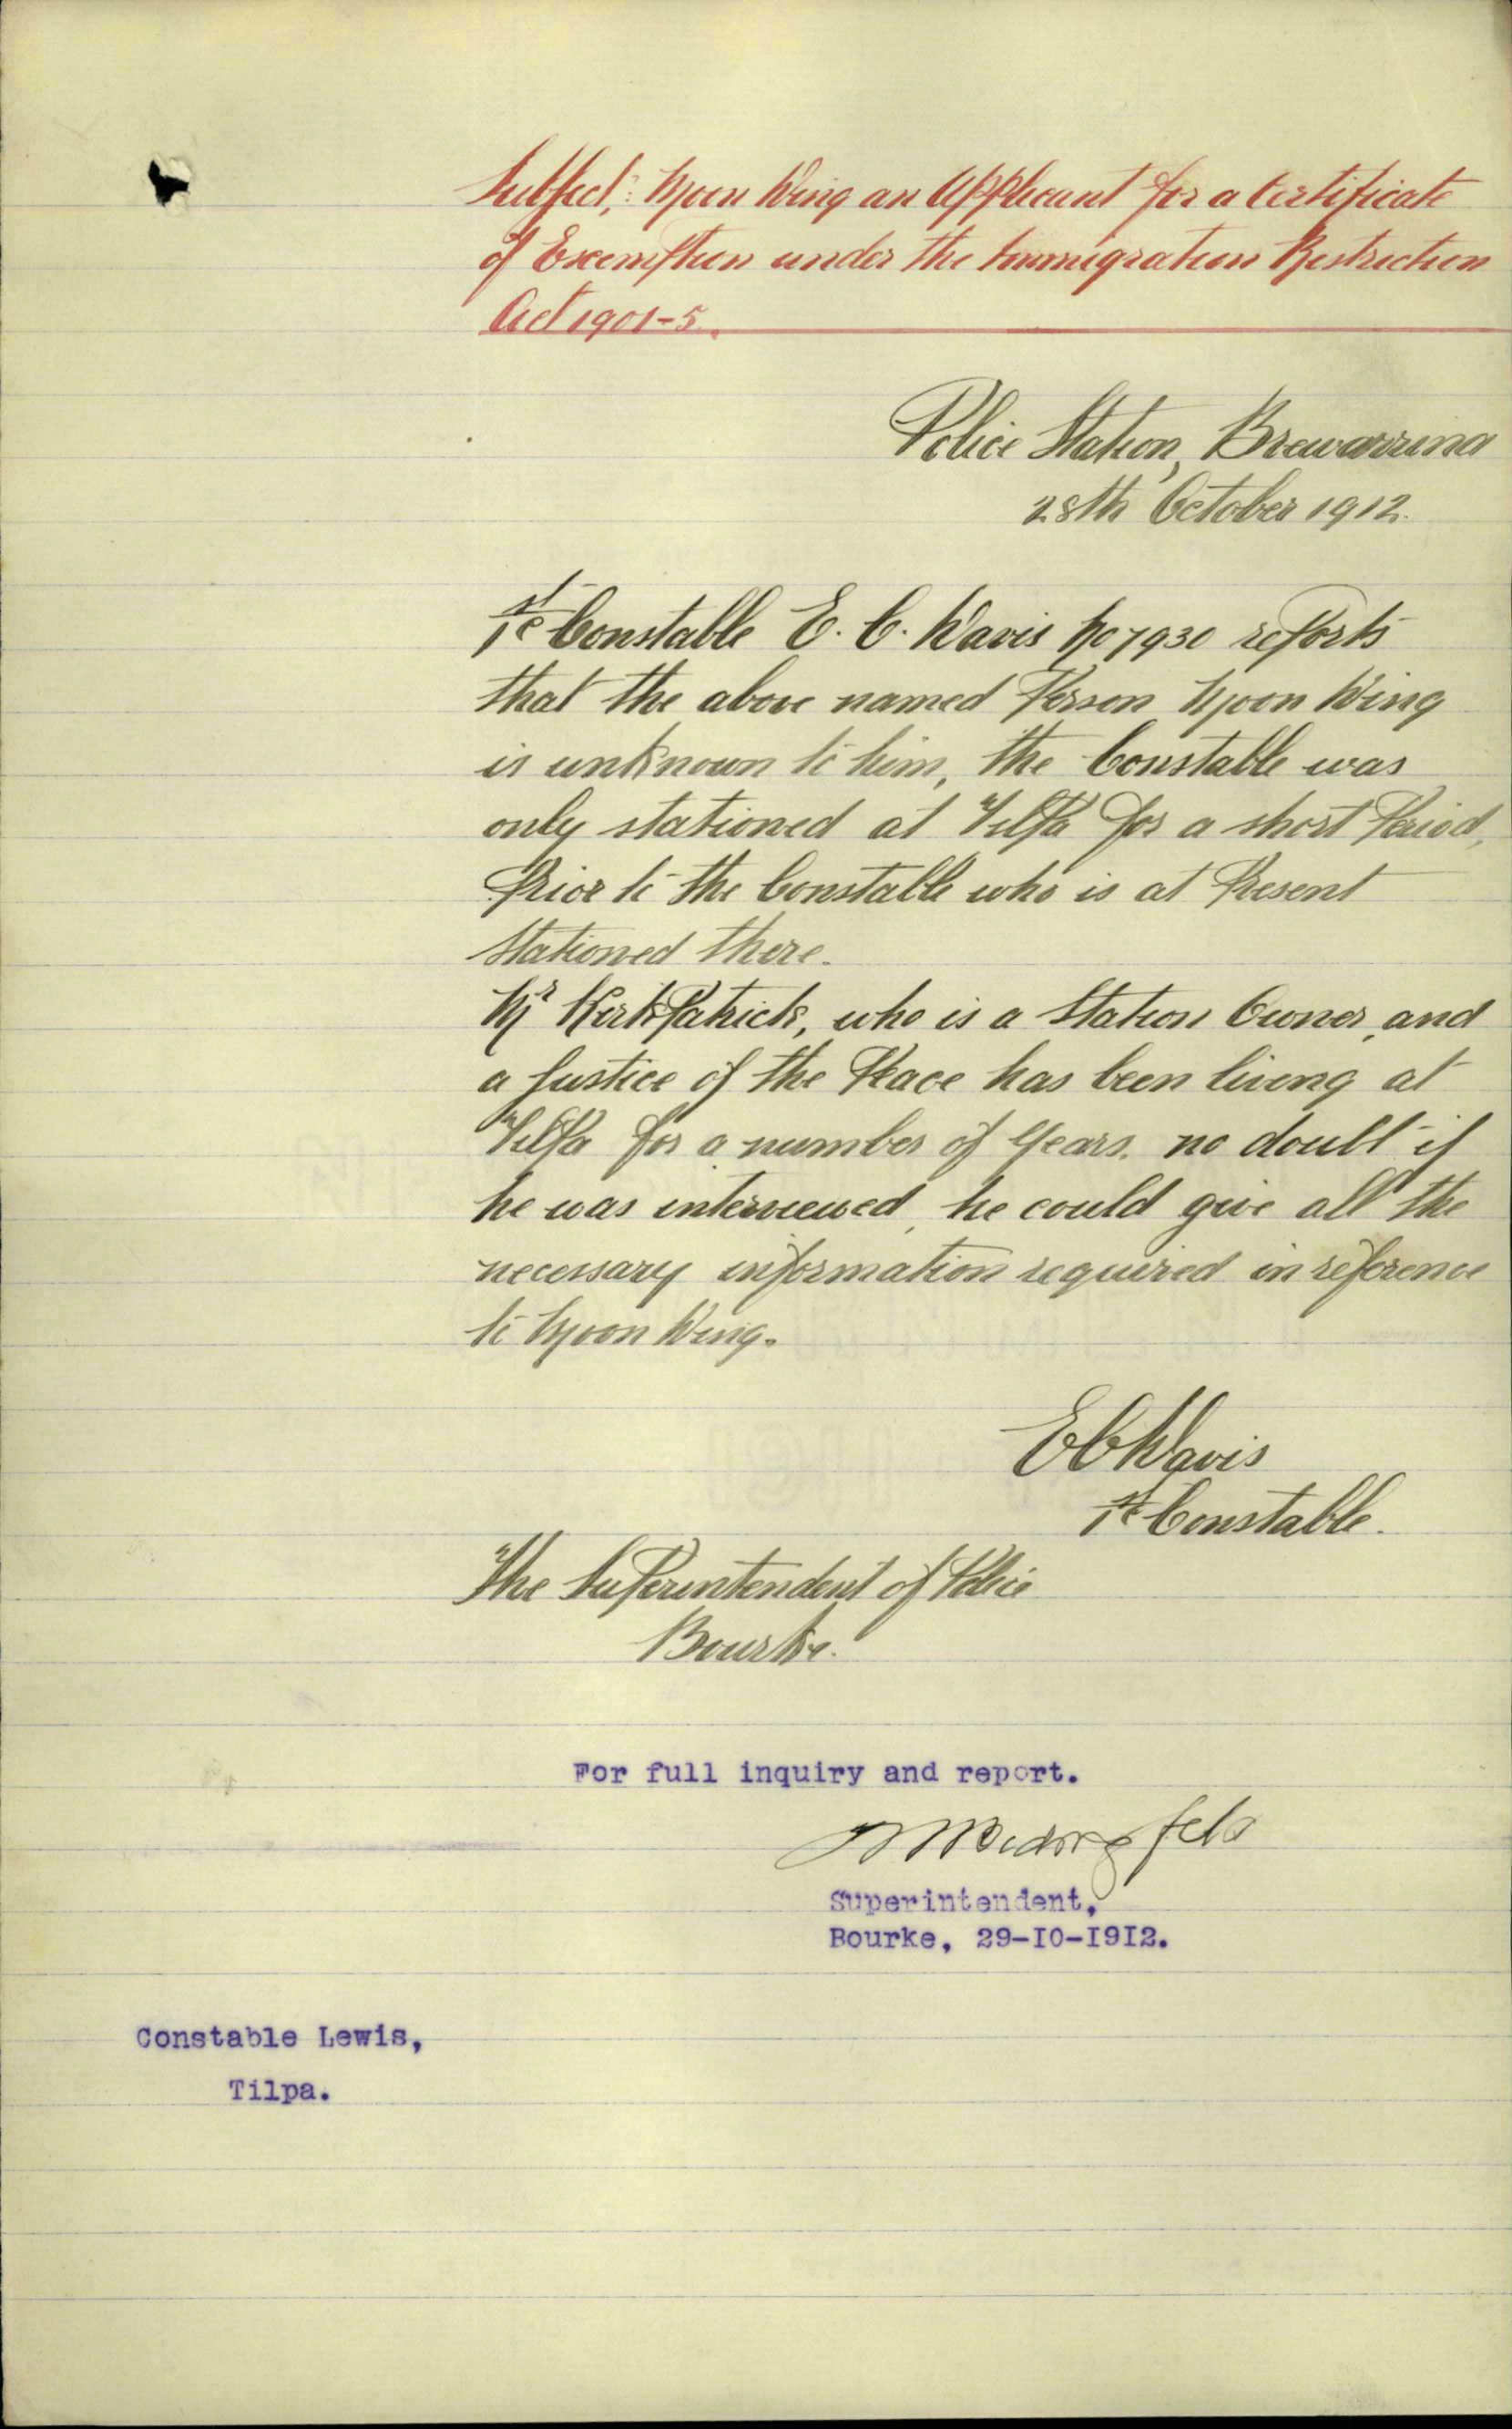 Subject: Moon Wing an Applicant for a Certificate
of Exemption under the Immigration Restriction
Act 1901-5.
Police Station, Brewarrina
28th October 1912.
1st Constable E. C. Davis No 7930 reports
that the above named Person Moon Wing
is unknown to him, the Constable was
only stationed at Tilpa for a short Period,
Prior to the Constable who is at Present
Stationed there.
Mr KirkPatrick, who is a Station Owner, and
a Justice of the Peace has been living at
Tilpa for a number of Years. no doubt if
he was interviewed, he could give all the
necessary information required in reference
to Moon Wing.
E C Davis
1st Constable.
The Superintendent of Police
Bourke.
For full inquiry and report.
Superintendent,
Bourke, 29-IO-I9I2.
Constable Lewis,
Tilpa.